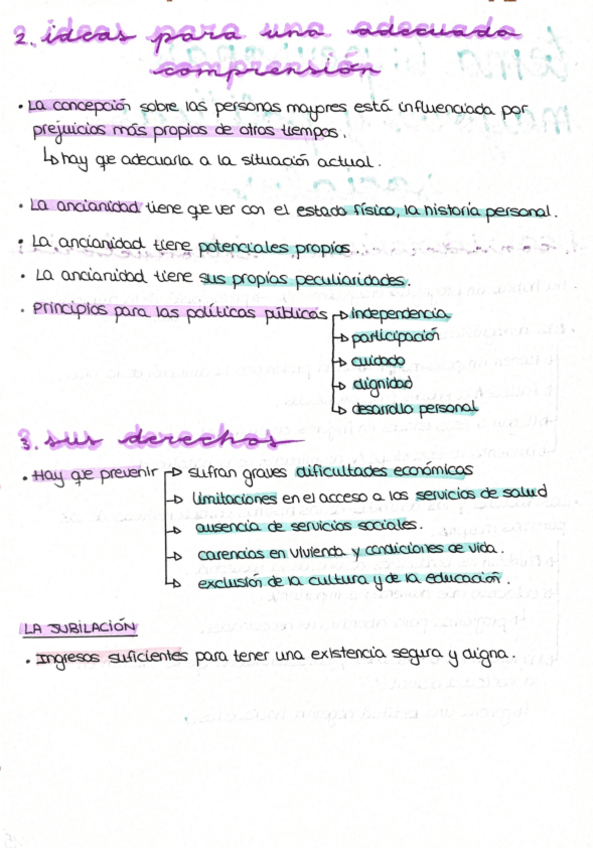 2. ideas para una adecuada
comprensión
• La concepción sobre las personas mayores está influenciada por
prejuicios más propios de otros tiempos.
↳ hay que adecuarla a la situación actual.
• La ancianidad tiene que ver con el estado físico, la historia personal.
• La ancianidad tiene potenciales propios.
• La ancianidad tiene sus propias peculiaridades.
• Principios para las políticas públicas → independencia
→ participación
→ cuidado
→ dignidad
→ desarrollo personal
3. sus derechos
• Hay que prevenir → sufran graves dificultades económicas
→ limitaciones en el acceso a los servicios de salud
→ ausencia de servicios sociales.
→ carencias en vivienda y condiciones de vida.
→ exclusión de la cultura y de la educación.
LA JUBILACIÓN
• Ingresos suficientes para tener una existencia segura y digna.